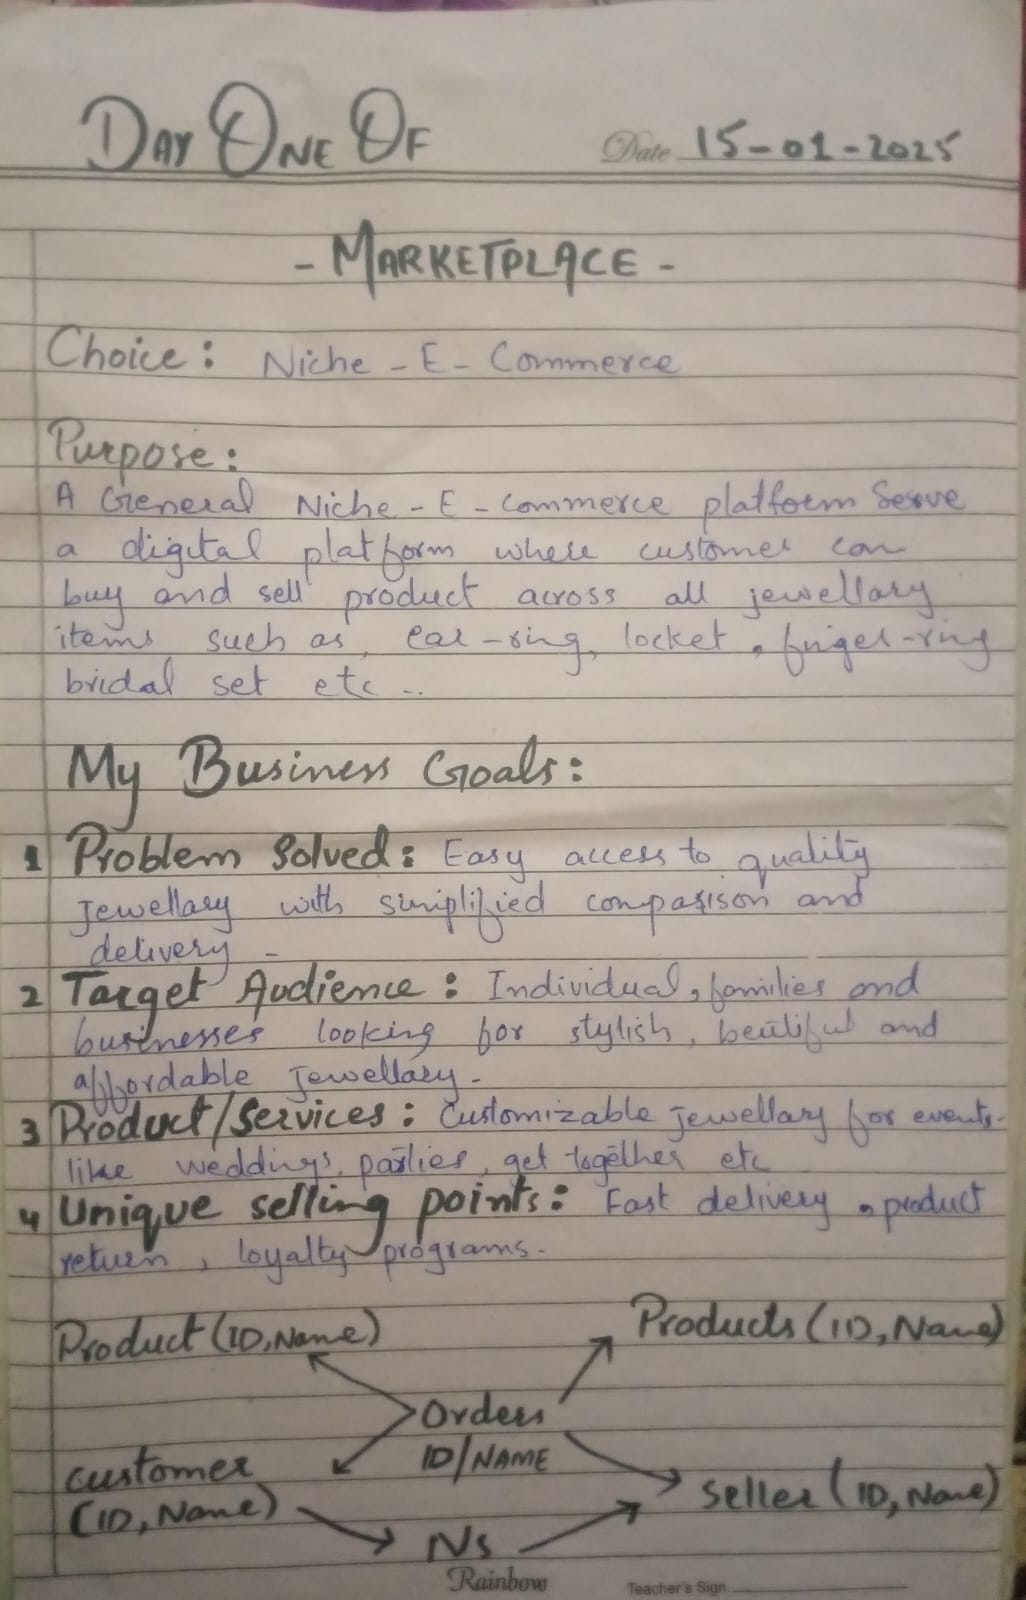 DAY ONE OF
Date 15-01-2025
- MARKETPLACE -
Choice: Niche - E - Commerce
Purpose:
A General Niche - E - commerce platform Serve
a digital platform where customer can
buy and sell product across all jewellary
items such as, ear-ring, locket, finger-ring
bridal set etc ..
My Business Goals:
1 Problem Solved: Easy access to quality
Jewellary with simplified comparison and
delivery -
2 Target Audience: Individual, families and
businesses looking for stylish, beutiful and
affordable Jewellary -
3 Product/Services: Customizable jewellary for events-
like weddings, parties, get together etc
4 Unique selling points: Fast delivery, product
return, loyalty programs.
Product (ID, Name) Products (ID, Name)
Orders
ID/NAME
customer
(ID, Name) Seller (ID, Name)
Ns
Rainbow
Teacher's Sign